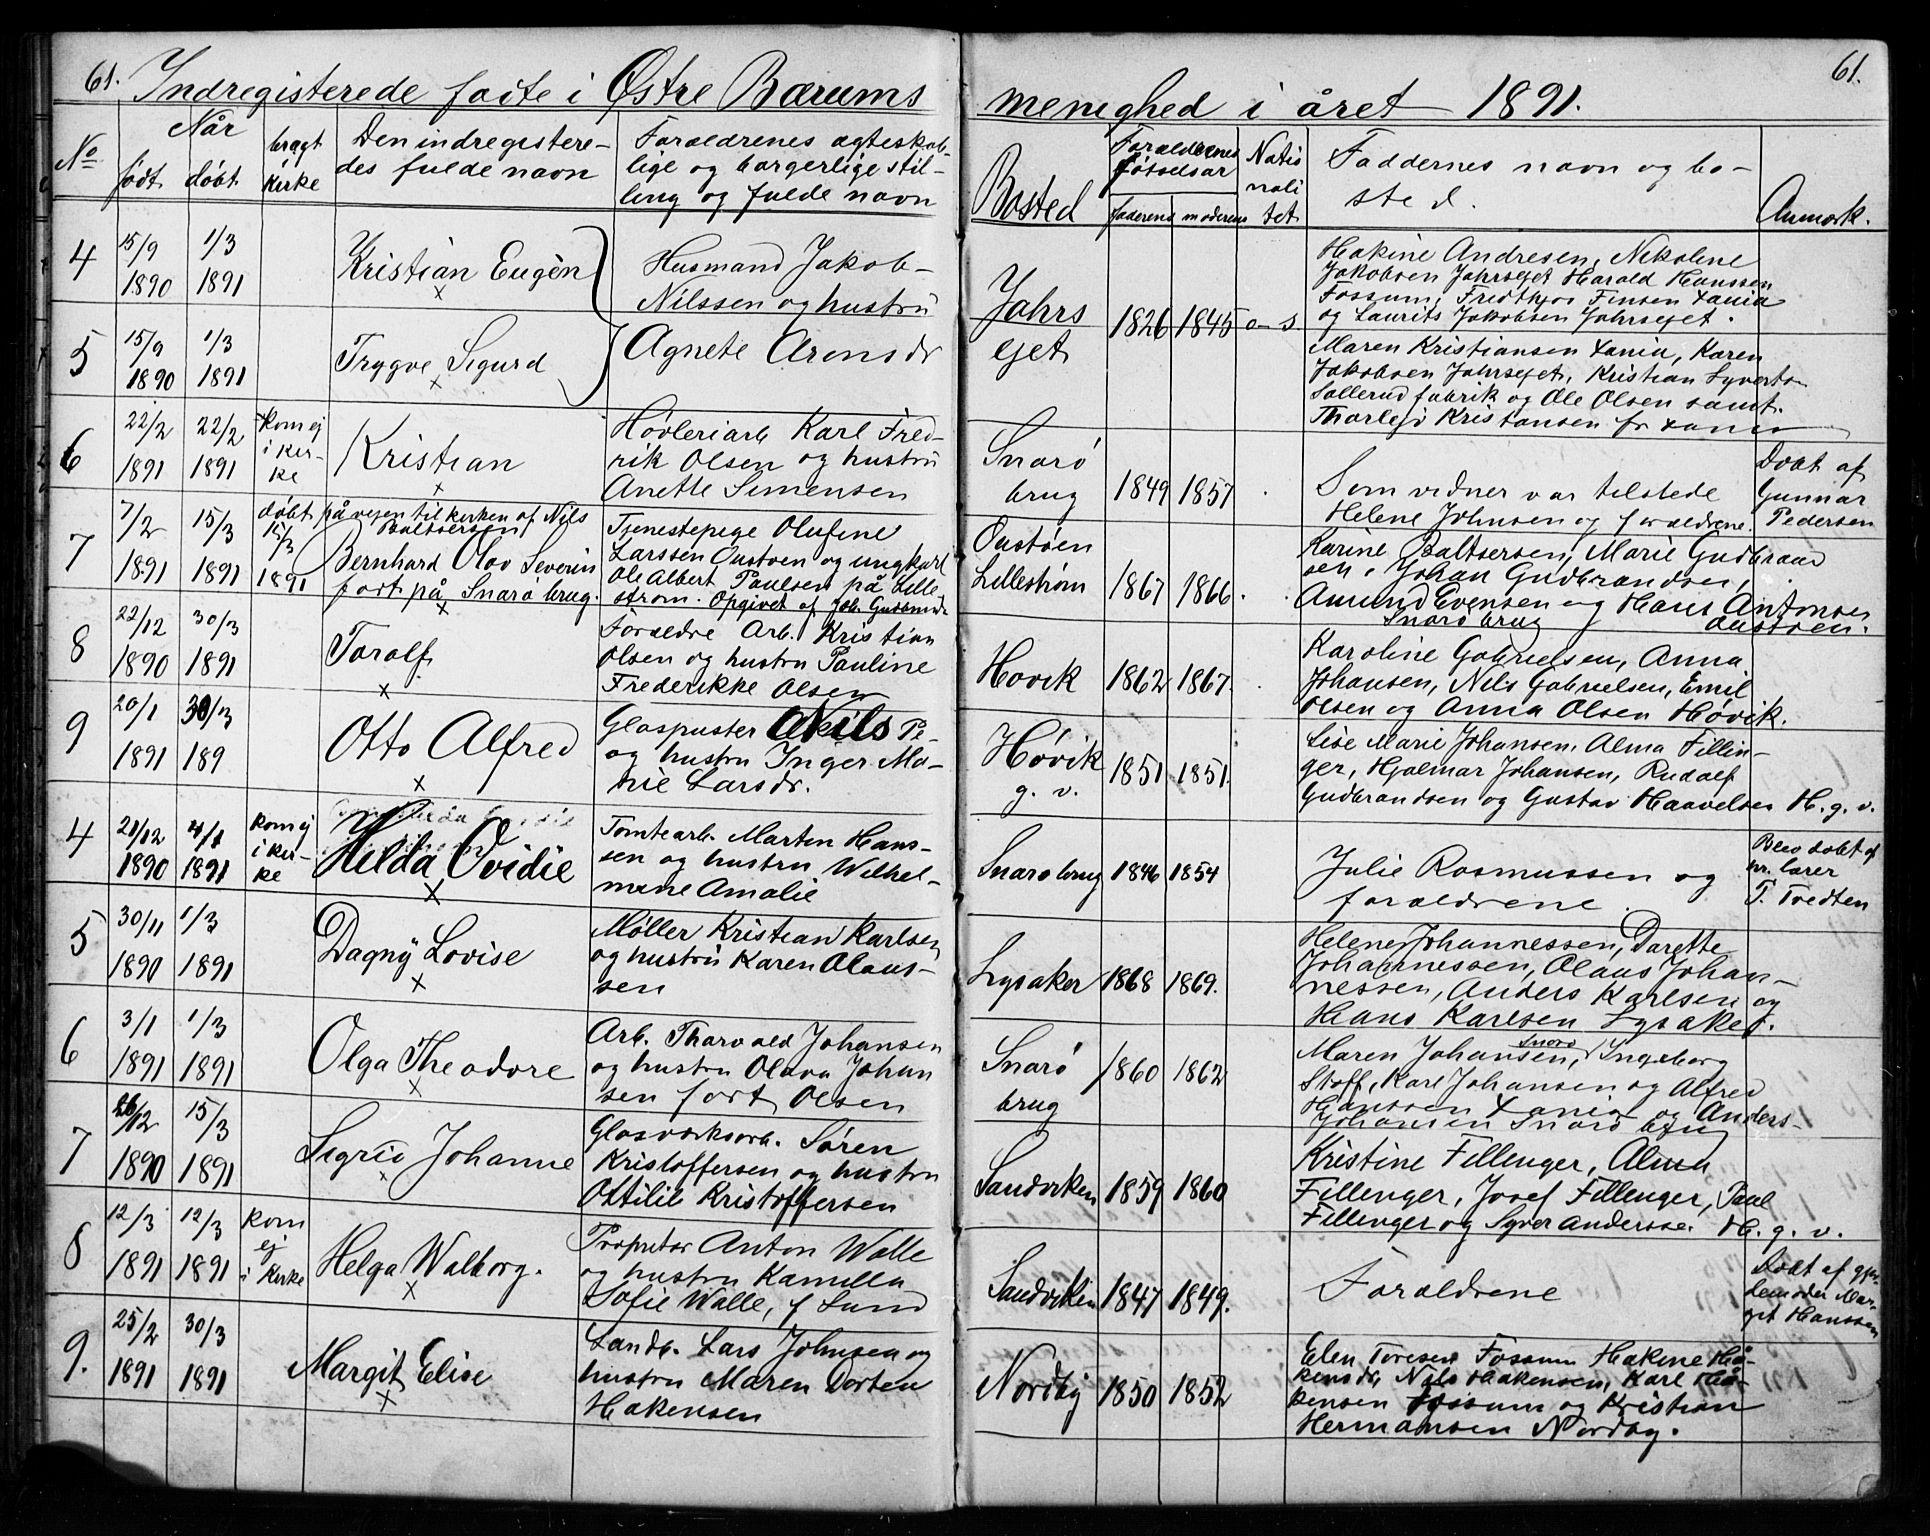 61. Indregisterede fødte i Østre Bærums
menighed i året 1891. 61.
No
Når
født døbt
bragt
kirke
Den indregistere-
des fulde navn
Forældrenes ægteskab-
lige og borgerlige stil-
ling og fulde navn
Bosted
Forældrenes
fødselsår
faderens moderens
Natio
nali
tet
Faddernes navn og bo-
sted.
Anmærk.
4
15/9 1/3
1890 1891
Kristian Eugèn
Husmand Jakob
Nilssen og hustru
Agnete Arensdr
Jahrs
ejet
1826 1845 o - s
Hakine Andresen, Nikoline
Jakobsen Jahrsejet Harald Hanssen
Fossum, Fredthjov Finsen Xania
og Laurits Jakobsen Jahrsejet.
5
15/9 1/3
1890 1891
Trygve Sigurd
Maren Kristiansen Xania, Karen
Jakobsen Jahrsejet, Kristian Syverts
Sollerud fabrik og Ole Olsen samt.
Thorleif Kristansen fr Xania
6
22/2 22/2
1891 1891
kom ej
i kir-
ke
Kristian
Høvleriarb Karl Fred-
rik Olsen og hustru
Anette Simensen
Snarø
brug
1849 1857
Som vidner var tilstede
Helene Johnsen og forældrene.
Døbt af
Gunnar
Pedersen
7
7/2 15/3
1891 1891
døbt på vejen til kirken af Nils
Baltsersen
15/3
1891
Bernhard Olav Severin
født på Snarø brug.
Tjenestepige Olufine
Larssen Oustøen og ungkarl
Ole Albert Paulsen på Lille
strøm. Opgivet af Joh. Gudbrands
Oustøen
Lillestrøm
1867 1866
Karine Baltsersen, Marie Gudbrand
sen, Johan Gudbrandsen,
Amund Evensen og Hans Antonsen
Snarø brug Oustøen.
8
22/12 30/3
1890 1891
Toralf
Forældre Arb. Kristian
Olsen og hustru Pauline
Frederikke Olsen
Høvik
1862 1867
Karoline Gabrielsen, Anna
Johansen, Nils Gabrielsen, Emil
Olsen og Anna Olsen Høvik.
9
20/1 30/3
1891 189
Otto Alfred
Glaspuster Nils Pe-
og hustru Inger Ma-
rie Larsdr.
Høvik
g. v.
1851 1851
Lise Marie Johansen, Alma Fillin-
ger, Hjalmar Johansen, Rudolf
Gudbrandsen og Gustav Haavelsen H. g. v.
4
21/12 4/1
1890 1891
kom ej
i kir-
ke
Helda Ovidie
Tomtearb. Marten Hans-
sen og hustru Wilhel-
mine Amalie
Snarø brug
1846 1854
Julie Rasmussen og
forældrene.
Blev døbt af
lærer
T. Tvedten
5
30/11 1/3
1890 1891
Dagny Lovise
Møller Kristian Karlsen
og hustru Karen Olaus-
sen
Lysaker
1868 1869.
Helene Johannessen, Dorette
Johannessen, Olaus Johan-
nessen, Anders Karlsen og
Hans Karlsen Lysaker.
6
3/1 1/3
1891 1891
Olga Theodore
Arb. Thorvald Johansen
og hustru Olava Johan
sen født Olsen
Snarø
brug
1860 1862
Maren Johansen, Snarø Ingeborg
Stoff, Karl Johansen og Alfred
Hanssen Xania og Anders
Johansen Snarø brug
7
26/12 15/3
1890 1891
Sigrid Johanne
Glasværksarb. Søren
Kristoffersen og hustru
Ottilie Kristoffersen
Sandviken
1859 1860
Kristine Fillenger, Alma
Fillenger, Josef Fillenger, Paul
Fillenger og Syver Anderssen H. g. v.
8
12/3 12/3
1891 1891
kom
ej
i kirke
Helga Walborg.
Proprietær Anton Walle
og hustru Kamilla
Sofie Walle, f Lund
Sandviken
1847 1849.
Forældrene
Døbt af gjor-
demoder Mar-
git Hanssen
9.
25/2 30/3
1891 1891
Margit Elise
Landb. Lars Johnsen og
hustru Maren Dorten
Hakensen
Nordby
1850 1852
Elen Toresen Fossum Hakine Hå-
kensdr Nils Hakensen, Karl Hå-
kensen Fossum og Kristian
Hermansen Nordby.